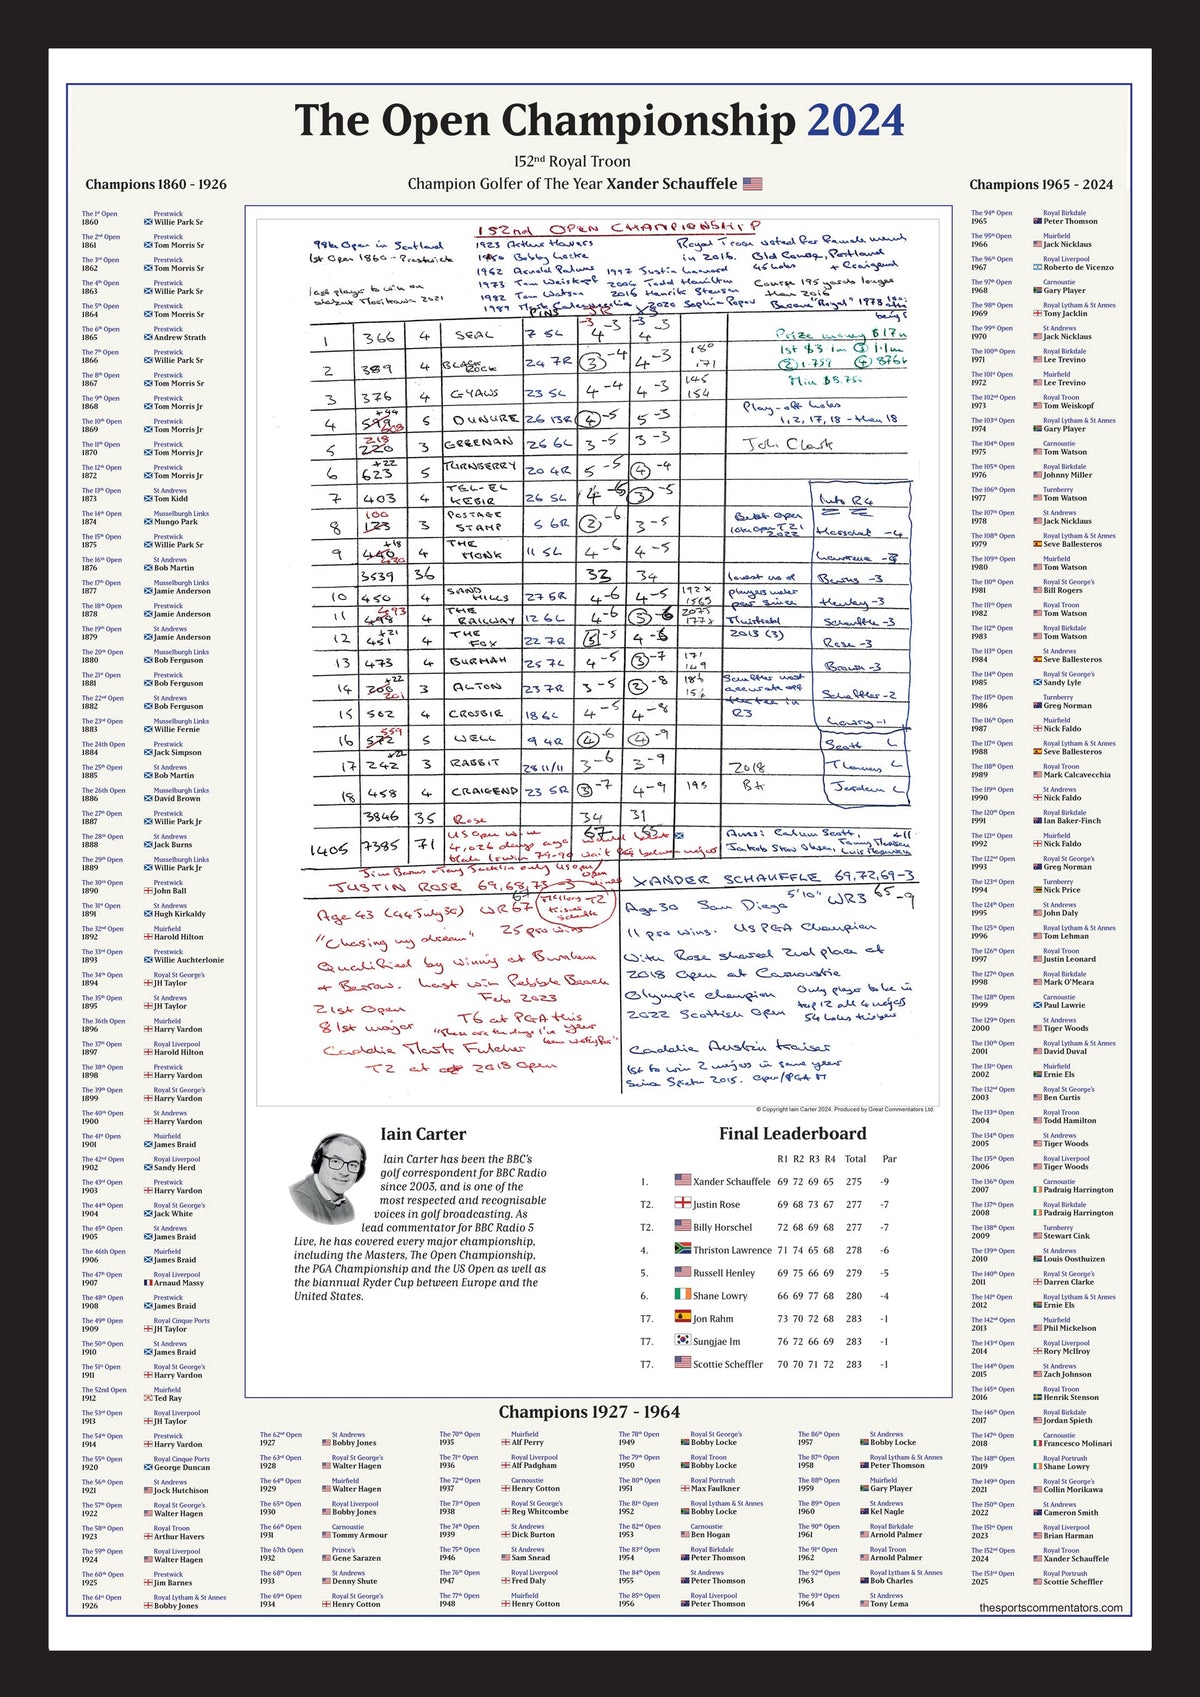 The Open Championship 2024
152nd Royal Troon
Champion Golfer of The Year Xander Schauffele
Champions 1860 - 1926
The 1st Open Prestwick
1860 Willie Park Sr
The 2nd Open Prestwick
1861 Tom Morris Sr
The 3rd Open Prestwick
1862 Tom Morris Sr
The 4th Open Prestwick
1863 Willie Park Sr
The 5th Open Prestwick
1864 Tom Morris Sr
The 6th Open Prestwick
1865 Andrew Strath
The 7th Open Prestwick
1866 Willie Park Sr
The 8th Open Prestwick
1867 Tom Morris Sr
The 9th Open Prestwick
1868 Tom Morris Jr
The 10th Open Prestwick
1869 Tom Morris Jr
The 11th Open Prestwick
1870 Tom Morris Jr
The 12th Open Prestwick
1872 Tom Morris Jr
The 13th Open St Andrews
1873 Tom Kidd
The 14th Open Musselburgh Links
1874 Mungo Park
The 15th Open Prestwick
1875 Willie Park Sr
The 16th Open St Andrews
1876 Bob Martin
The 17th Open Musselburgh Links
1877 Jamie Anderson
The 18th Open Prestwick
1878 Jamie Anderson
The 19th Open St Andrews
1879 Jamie Anderson
The 20th Open Musselburgh Links
1880 Bob Ferguson
The 21st Open Prestwick
1881 Bob Ferguson
The 22nd Open St Andrews
1882 Bob Ferguson
The 23rd Open Musselburgh Links
1883 Willie Fernie
The 24th Open Prestwick
1884 Jack Simpson
The 25th Open St Andrews
1885 Bob Martin
The 26th Open Musselburgh Links
1886 David Brown
The 27th Open Prestwick
1887 Willie Park Jr
The 28th Open St Andrews
1888 Jack Burns
The 29th Open Musselburgh Links
1889 Willie Park Jr
The 30th Open Prestwick
1890 John Ball
The 31st Open St Andrews
1891 Hugh Kirkaldy
The 32nd Open Muirfield
1892 Harold Hilton
The 33rd Open Prestwick
1893 Willie Auchterlonie
The 34th Open Royal St George's
1894 JH Taylor
The 35th Open St Andrews
1895 JH Taylor
The 36th Open Muirfield
1896 Harry Vardon
The 37th Open Royal Liverpool
1897 Harold Hilton
The 38th Open Prestwick
1898 Harry Vardon
The 39th Open Royal St George's
1899 Harry Vardon
The 40th Open St Andrews
1900 Harry Vardon
The 41st Open Muirfield
1901 James Braid
The 42nd Open Royal Liverpool
1902 Sandy Herd
The 43rd Open Prestwick
1903 Harry Vardon
The 44th Open Royal St George's
1904 Jack White
The 45th Open St Andrews
1905 James Braid
The 46th Open Muirfield
1906 James Braid
The 47th Open Royal Liverpool
1907 Arnaud Massy
The 48th Open Prestwick
1908 James Braid
The 49th Open Royal Cinque Ports
1909 JH Taylor
The 50th Open St Andrews
1910 James Braid
The 51st Open Royal St George's
1911 Harry Vardon
The 52nd Open Muirfield
1912 Ted Ray
The 53rd Open Royal Liverpool
1913 JH Taylor
The 54th Open Prestwick
1914 Harry Vardon
The 55th Open Royal Cinque Ports
1920 George Duncan
The 56th Open St Andrews
1921 Jock Hutchison
The 57th Open Royal St George's
1922 Walter Hagen
The 58th Open Royal Troon
1923 Arthur Havers
The 59th Open Royal Liverpool
1924 Walter Hagen
The 60th Open Prestwick
1925 Jim Barnes
The 61st Open Royal Lytham & St Annes
1926 Bobby Jones
152nd OPEN CHAMPIONSHIP
98th Open in Scotland
1st Open 1860 - Prestwick
1923 Arthur Havers
1950 Bobby Locke
1962 Arnold Palmer 1997 Justin Leonard
1973 Tom Weiskopf 2004 Todd Hamilton
1982 Tom Watson 2016 Henrik Stenson
1989 Mark Calcavecchia 2020 Sophia Popov
Royal Troon voted for female members
in 2016. Old Course, Portland
45 holes + Craigend
Course 195 yards longer
than 2016
Became "Royal" 1978
PINS JR XS
1 366 4 SEAL 7 5L 4 -3 4 -3
2 389 4 BLACK ROCK 24 7R 3 -4 4 -3 180 171
3 376 4 GYAWS 23 5L 4 -4 4 -3 145 154
4 599 5 DUNURE 26 13R 4 -5 5 -3
5 220 3 GREENAN 26 6L 3 -5 3 -3
6 623 5 TURNBERRY 20 4R 5 -5 4 -4
7 403 4 TEL-EL KEBIR 26 5L 4 -5 3 -5
8 123 3 POSTAGE STAMP 5 6R 2 -6 3 -5
9 440 4 THE MONK 11 5L 4 -6 4 -5
3539 36 32 34
10 450 4 SAND HILLS 27 5R 4 -6 4 -5
11 498 4 THE RAILWAY 12 6L 4 -6 3 -6
12 451 4 THE FOX 22 7R 5 -5 4 -6
13 473 4 BURMAH 25 7L 4 -5 3 -7 171 149
14 200 3 AILTON 23 7R 3 -5 2 -8
15 502 4 CROSBIE 18 6L 4 -5 4 -8
16 572 5 WELL 9 4R 4 -6 4 -9
17 242 3 RABBIT 28 11/11 3 -6 3 -9
18 458 4 CRAIGEND 23 5R 3 -7 4 -9 195
3846 35 Rose 34 31
1405 7385 71 67 65
Prize money $17m
1st $3.1m
Play-off holes
1, 2, 17, 18 - then 18
John Clark
Into R4
Horschel -4
Lawrence -3
Burns -3
Henley -3
Schauffele -3
Rose -3
Brown -3
Scheffler -2
Lowry -1
Scott L
Thomas L
Jordan L
lowest no of
players under
par since
Muirfield
2013 (3)
Scheffler most
accurate off
the tee in
R3
JUSTIN ROSE 69,68,73 -3
Age 43 (44 July 30) WR67
25 pro wins
"Chasing my dream"
Qualified by winning at Burnham
+ Berrow. Last win Pebble Beach
Feb 2023
21st Open
81st major T6 at PGA this year
Caddie Mark Fulcher
T2 at 2018 Open
XANDER SCHAUFFLE 69,72,69-3
65 -9
Age 30 San Diego 5'10" WR3
11 pro wins. US PGA Champion
With Rose shared 2nd place at
2018 Open at Carnoustie
Olympic champion
2022 Scottish Open
Only player to be in
top 12 all 4 majors
54 holes this year
Caddie Austin Kaiser
1st to win 2 majors in same year
since Spieth 2015. Open/PGA
© Copyright Iain Carter 2024. Produced by Great Commentators Ltd.
Iain Carter
Iain Carter has been the BBC's
golf correspondent for BBC Radio
since 2003, and is one of the
most respected and recognisable
voices in golf broadcasting. As
lead commentator for BBC Radio 5
Live, he has covered every major championship,
including the Masters, The Open Championship,
the PGA Championship and the US Open as well as
the biannual Ryder Cup between Europe and the
United States.
Final Leaderboard
R1 R2 R3 R4 Total Par
1. Xander Schauffele 69 72 69 65 275 -9
T2. Justin Rose 69 68 73 67 277 -7
T2. Billy Horschel 72 68 69 68 277 -7
4. Thriston Lawrence 71 74 65 68 278 -6
5. Russell Henley 69 75 66 69 279 -5
6. Shane Lowry 66 69 77 68 280 -4
T7. Jon Rahm 73 70 72 68 283 -1
T7. Sungjae Im 76 72 66 69 283 -1
T7. Scottie Scheffler 70 70 71 72 283 -1
Champions 1927 - 1964
The 62nd Open St Andrews
1927 Bobby Jones
The 63rd Open Royal St George's
1928 Walter Hagen
The 64th Open Muirfield
1929 Walter Hagen
The 65th Open Royal Liverpool
1930 Bobby Jones
The 66th Open Carnoustie
1931 Tommy Armour
The 67th Open Prince's
1932 Gene Sarazen
The 68th Open St Andrews
1933 Denny Shute
The 69th Open Royal St George's
1934 Henry Cotton
The 70th Open Muirfield
1935 Alf Perry
The 71st Open Royal Liverpool
1936 Alf Padgham
The 72nd Open Carnoustie
1937 Henry Cotton
The 73rd Open Royal St George's
1938 Reg Whitcombe
The 74th Open St Andrews
1939 Dick Burton
The 75th Open St Andrews
1946 Sam Snead
The 76th Open Royal Liverpool
1947 Fred Daly
The 77th Open Muirfield
1948 Henry Cotton
The 78th Open Royal St George's
1949 Bobby Locke
The 79th Open Royal Troon
1950 Bobby Locke
The 80th Open Royal Portrush
1951 Max Faulkner
The 81st Open Royal Lytham & St Annes
1952 Bobby Locke
The 82nd Open Carnoustie
1953 Ben Hogan
The 83rd Open Royal Birkdale
1954 Peter Thomson
The 84th Open St Andrews
1955 Peter Thomson
The 85th Open Royal Liverpool
1956 Peter Thomson
The 86th Open St Andrews
1957 Bobby Locke
The 87th Open Royal Lytham & St Annes
1958 Peter Thomson
The 88th Open Muirfield
1959 Gary Player
The 89th Open St Andrews
1960 Kel Nagle
The 90th Open Royal Birkdale
1961 Arnold Palmer
The 91st Open Royal Troon
1962 Arnold Palmer
The 92nd Open Royal Lytham & St Annes
1963 Bob Charles
The 93rd Open St Andrews
1964 Tony Lema
Champions 1965 - 2024
The 94th Open Royal Birkdale
1965 Peter Thomson
The 95th Open Muirfield
1966 Jack Nicklaus
The 96th Open Royal Liverpool
1967 Roberto de Vicenzo
The 97th Open Carnoustie
1968 Gary Player
The 98th Open Royal Lytham & St Annes
1969 Tony Jacklin
The 99th Open St Andrews
1970 Jack Nicklaus
The 100th Open Royal Birkdale
1971 Lee Trevino
The 101st Open Muirfield
1972 Lee Trevino
The 102nd Open Royal Troon
1973 Tom Weiskopf
The 103rd Open Royal Lytham & St Annes
1974 Gary Player
The 104th Open Carnoustie
1975 Tom Watson
The 105th Open Royal Birkdale
1976 Johnny Miller
The 106th Open Turnberry
1977 Tom Watson
The 107th Open St Andrews
1978 Jack Nicklaus
The 108th Open Royal Lytham & St Annes
1979 Seve Ballesteros
The 109th Open Muirfield
1980 Tom Watson
The 110th Open Royal St George's
1981 Bill Rogers
The 111th Open Royal Troon
1982 Tom Watson
The 112th Open Royal Birkdale
1983 Tom Watson
The 113th Open St Andrews
1984 Seve Ballesteros
The 114th Open Royal St George's
1985 Sandy Lyle
The 115th Open Turnberry
1986 Greg Norman
The 116th Open Muirfield
1987 Nick Faldo
The 117th Open Royal Lytham & St Annes
1988 Seve Ballesteros
The 118th Open Royal Troon
1989 Mark Calcavecchia
The 119th Open St Andrews
1990 Nick Faldo
The 120th Open Royal Birkdale
1991 Ian Baker-Finch
The 121st Open Muirfield
1992 Nick Faldo
The 122nd Open Royal St George's
1993 Greg Norman
The 123rd Open Turnberry
1994 Nick Price
The 124th Open St Andrews
1995 John Daly
The 125th Open Royal Lytham & St Annes
1996 Tom Lehman
The 126th Open Royal Troon
1997 Justin Leonard
The 127th Open Royal Birkdale
1998 Mark O'Meara
The 128th Open Carnoustie
1999 Paul Lawrie
The 129th Open St Andrews
2000 Tiger Woods
The 130th Open Royal Lytham & St Annes
2001 David Duval
The 131st Open Muirfield
2002 Ernie Els
The 132nd Open Royal St George's
2003 Ben Curtis
The 133rd Open Royal Troon
2004 Todd Hamilton
The 134th Open St Andrews
2005 Tiger Woods
The 135th Open Royal Liverpool
2006 Tiger Woods
The 136th Open Carnoustie
2007 Padraig Harrington
The 137th Open Royal Birkdale
2008 Padraig Harrington
The 138th Open Turnberry
2009 Stewart Cink
The 139th Open St Andrews
2010 Louis Oosthuizen
The 140th Open Royal St George's
2011 Darren Clarke
The 141st Open Royal Lytham & St Annes
2012 Ernie Els
The 142nd Open Muirfield
2013 Phil Mickelson
The 143rd Open Royal Liverpool
2014 Rory McIlroy
The 144th Open St Andrews
2015 Zach Johnson
The 145th Open Royal Troon
2016 Henrik Stenson
The 146th Open Royal Birkdale
2017 Jordan Spieth
The 147th Open Carnoustie
2018 Francesco Molinari
The 148th Open Royal Portrush
2019 Shane Lowry
The 149th Open Royal St George's
2021 Collin Morikawa
The 150th Open St Andrews
2022 Cameron Smith
The 151st Open Royal Liverpool
2023 Brian Harman
The 152nd Open Royal Troon
2024 Xander Schauffele
The 153rd Open Royal Portrush
2025 Scottie Scheffler
thesportscommentators.com